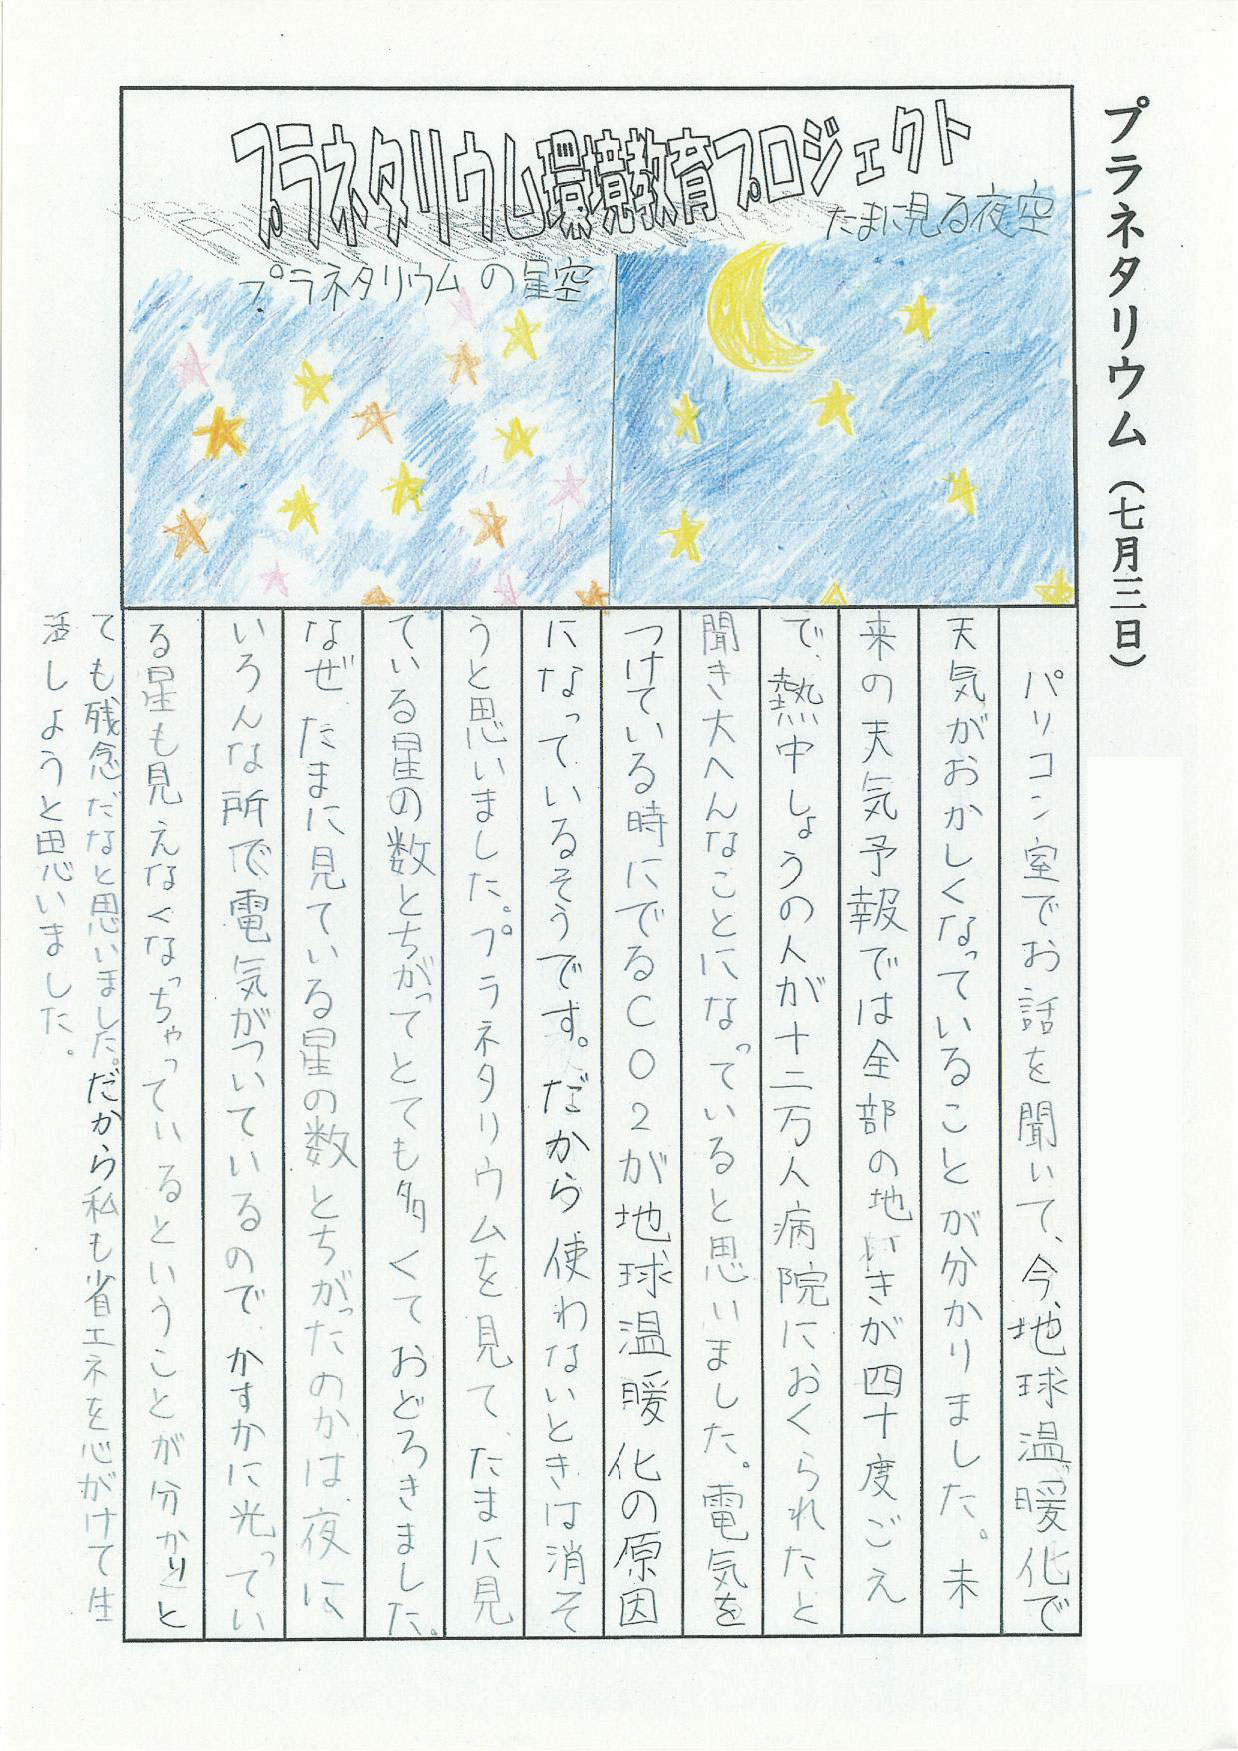 プラネタリウム（七月三日）
プラネタリウム環境教育プロジェクト
たまに見る夜空
プラネタリウムの星空
パソコン室でお話を聞いて、今、地球温暖化で
天気がおかしくなっていることが分かりました。未
来の天気予報では全部の地いきが四十度ごえ
で、熱中しょうの人が十二万人病院におくられたと
聞き大へんなことになっていると思いました。電気を
つけている時にでるCO2が地球温暖化の原因
になっているそうです。だから使わないときは消そ
うと思いました。プラネタリウムを見て、たまに見
ている星の数とちがってとても多くておどろきました。
なぜ、たまに見ている星の数とちがったのかは、夜に
いろんな所で電気がついているので、かすかに光ってい
る星も見えなくなっちゃっているということが分かりと
ても残念だなと思いました。だから私も省エネを心がけて生
活しようと思いました。